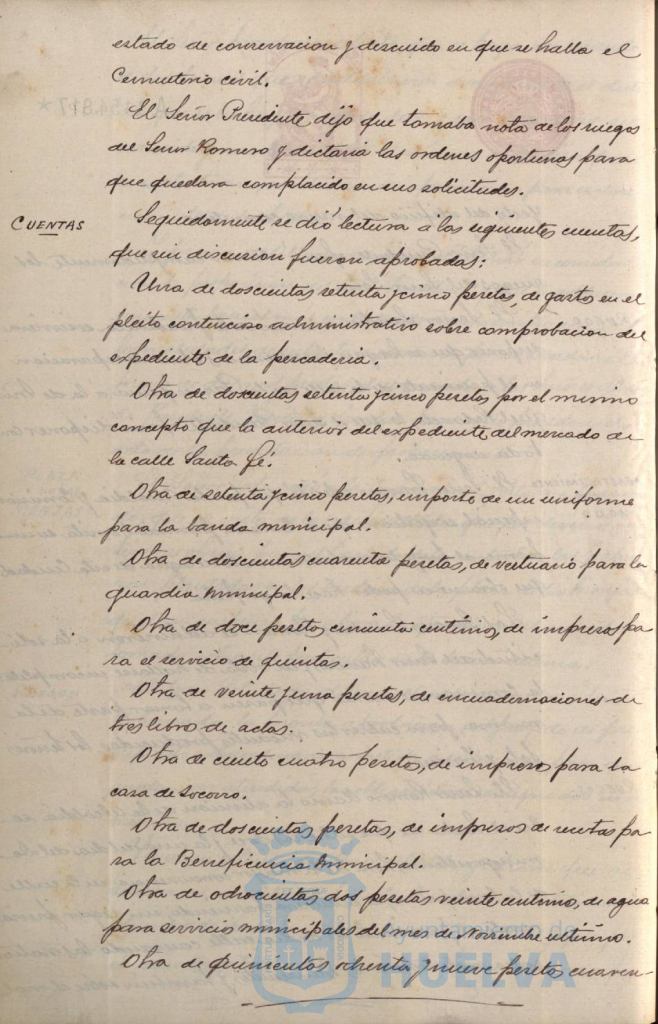 estado de conservacion y descuido en que se halla el
Cementerio civil.
El Señor Presidente dijo que tomaba nota de los ruegos
del Señor Romero y dictaria las ordenes oportunas para
que quedara complacido en sus solicitudes.
CUENTAS
Seguidamente se dió lectura á las siguientes cuentas,
que sin discusion fueron aprobadas:
Una de doscientas setenta y cinco pesetas, de gastos en el
pleito contencioso administrativo sobre comprobacion del
expediente de la pescaderia.
Otra de doscientas setenta y cinco pesetas por el mismo
concepto que la anterior del expediente del mercado de
la calle Santa Fé.
Otra de setenta y cinco pesetas, importe de un uniforme
para la banda municipal.
Otra de doscientas cuarenta pesetas, de vestuario para la
guardia municipal.
Otra de doce pesetas cincuenta centimos, de impresos pa-
ra el servicio de quintas.
Otra de veinte y una pesetas, de encuadernaciones de
tres libro de actas.
Otra de ciento cuatro pesetas, de impresos para la
casa de Socorro.
Otra de doscientas pesetas, de impresos de recetas pa-
ra la Beneficencia municipal.
Otra de ochocientas dos pesetas veinte centimos, de agua
para servicios municipales del mes de Noviembre ultimo.
Otra de quinientas ochenta y nueve pesetas cuaren-
HUELVA